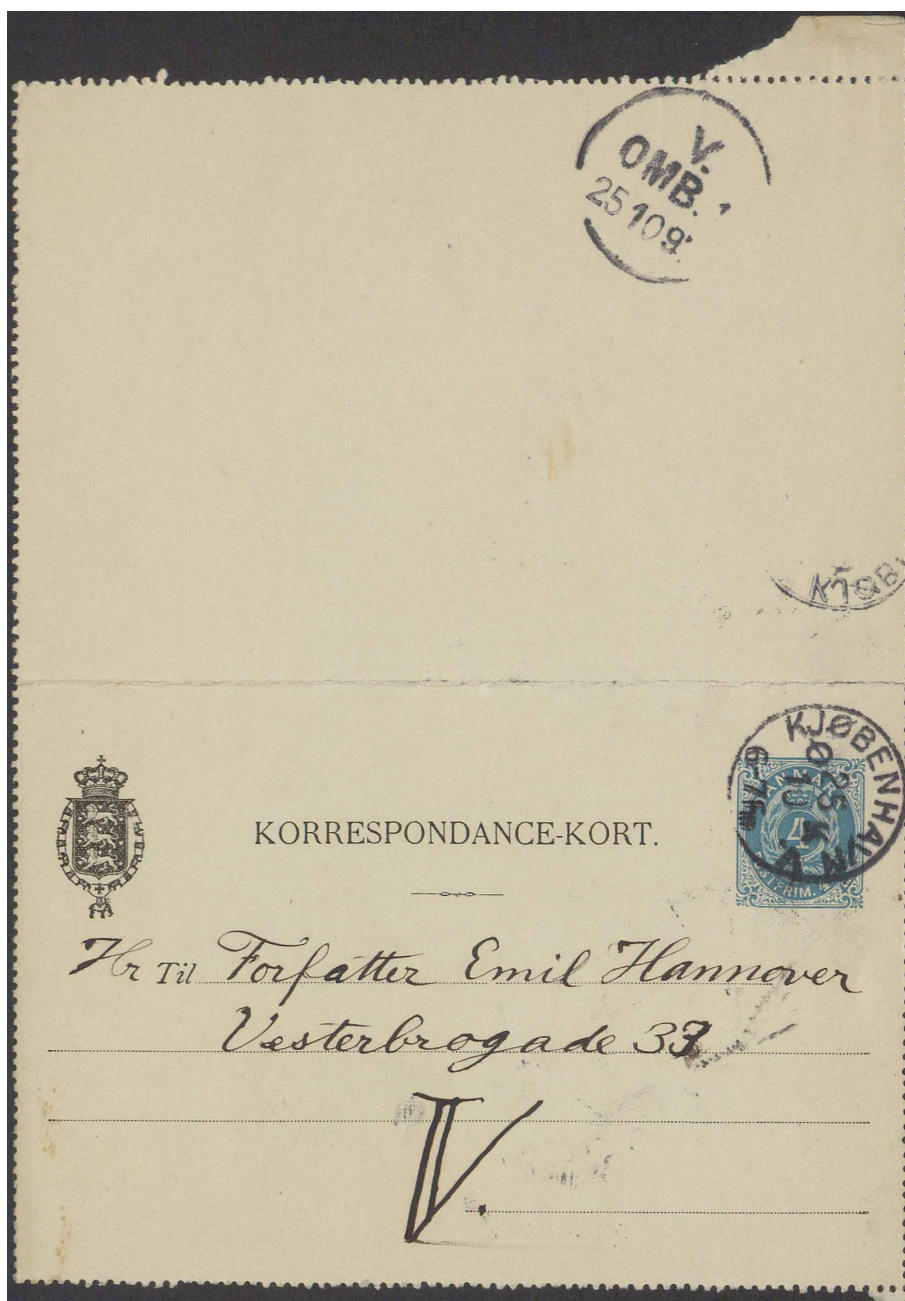 V.
OMB. 1
25 10 9
KJØB
KJØBENHAVN
Ø
25
10
6-7
K
V
4
KORRESPONDANCE-KORT.
Hr Til Forfatter Emil Hannover
Vesterbrogade 33
V.